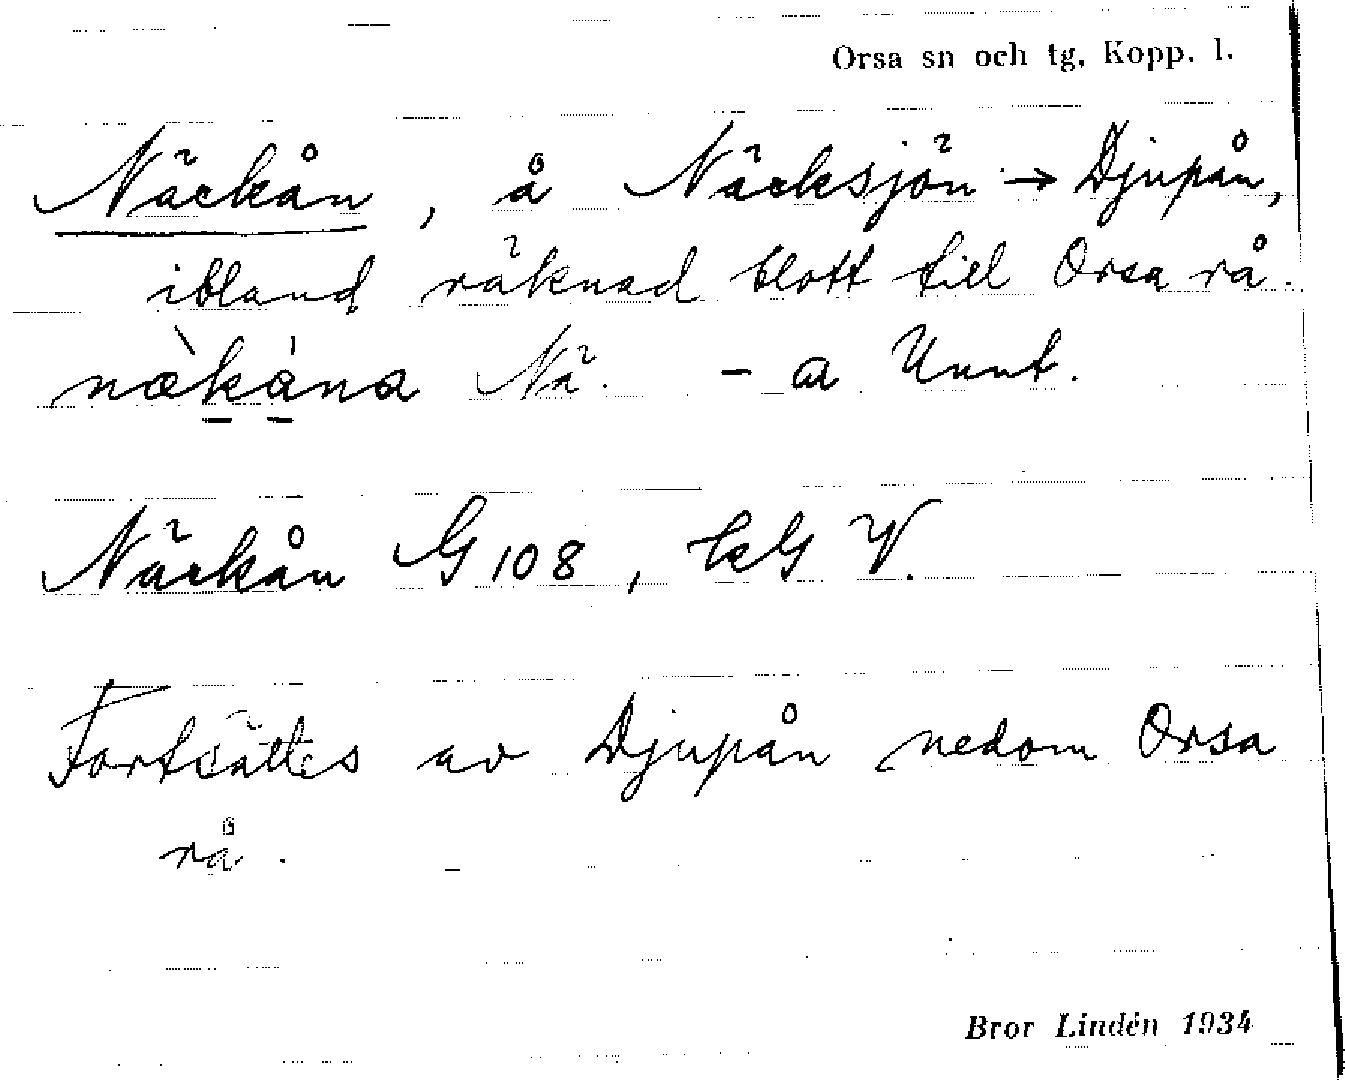 Orsa sn och tg, Kopp. l.
Näckån, å Näcksjön → Djupån,
ibland räknad blott till Orsa rå.
nækåna Nä. - a Unnt.
Näckån G 108, ekG V.
Fortsättes av Djupån nedom Orsa
rå.
Bror Lindén 1934